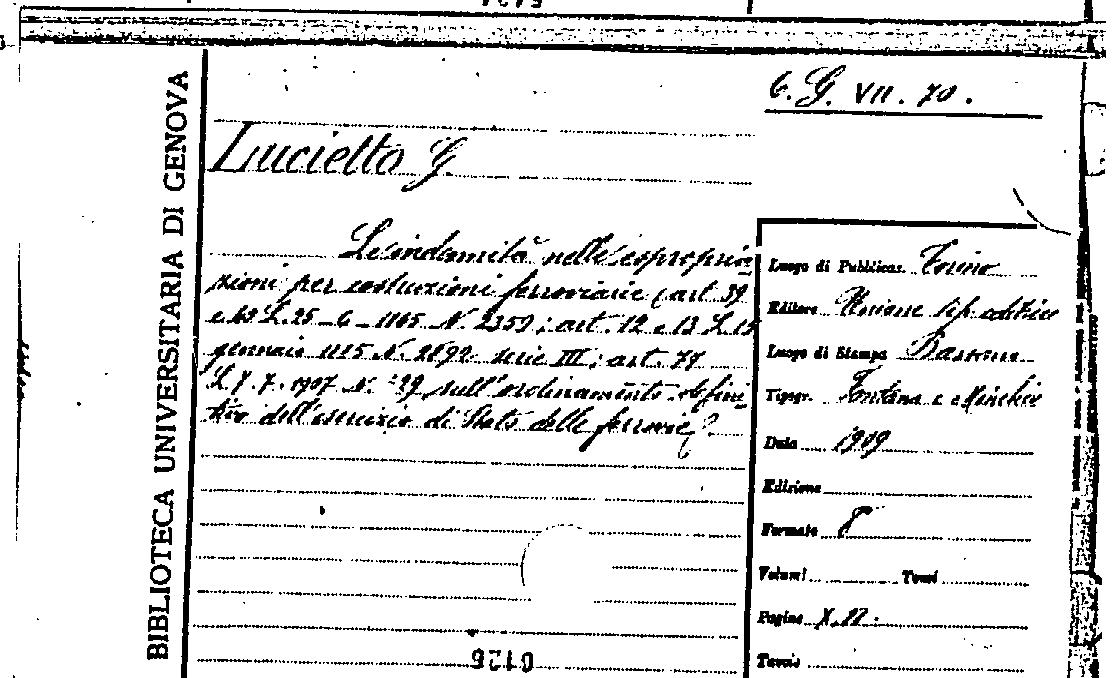 BIBLIOTECA UNIVERSITARIA DI GENOVA
6. G. VII. 70.
Lucietto G.
Le indennità nelle espropria-
zioni per costruzioni ferroviarie (art. 39
e 40 L. 25-6-1865 N. 2359; art. 12 e 13 L. 15
gennaio 1885 N. 2892 serie III; art. 77
L. 7. 7. 1907 N. 429 sull'ordinamento defini-
tivo dell'esercizio di Stato delle ferrovie)
Luogo di Pubblicaz. Torino
Editore Unione tip. editrice
Luogo di Stampa
Tipogr. Fontana e
Data 1909
Edizione
Formato 8°
Volumi Tomi
Pagine X.
Tavole
0126